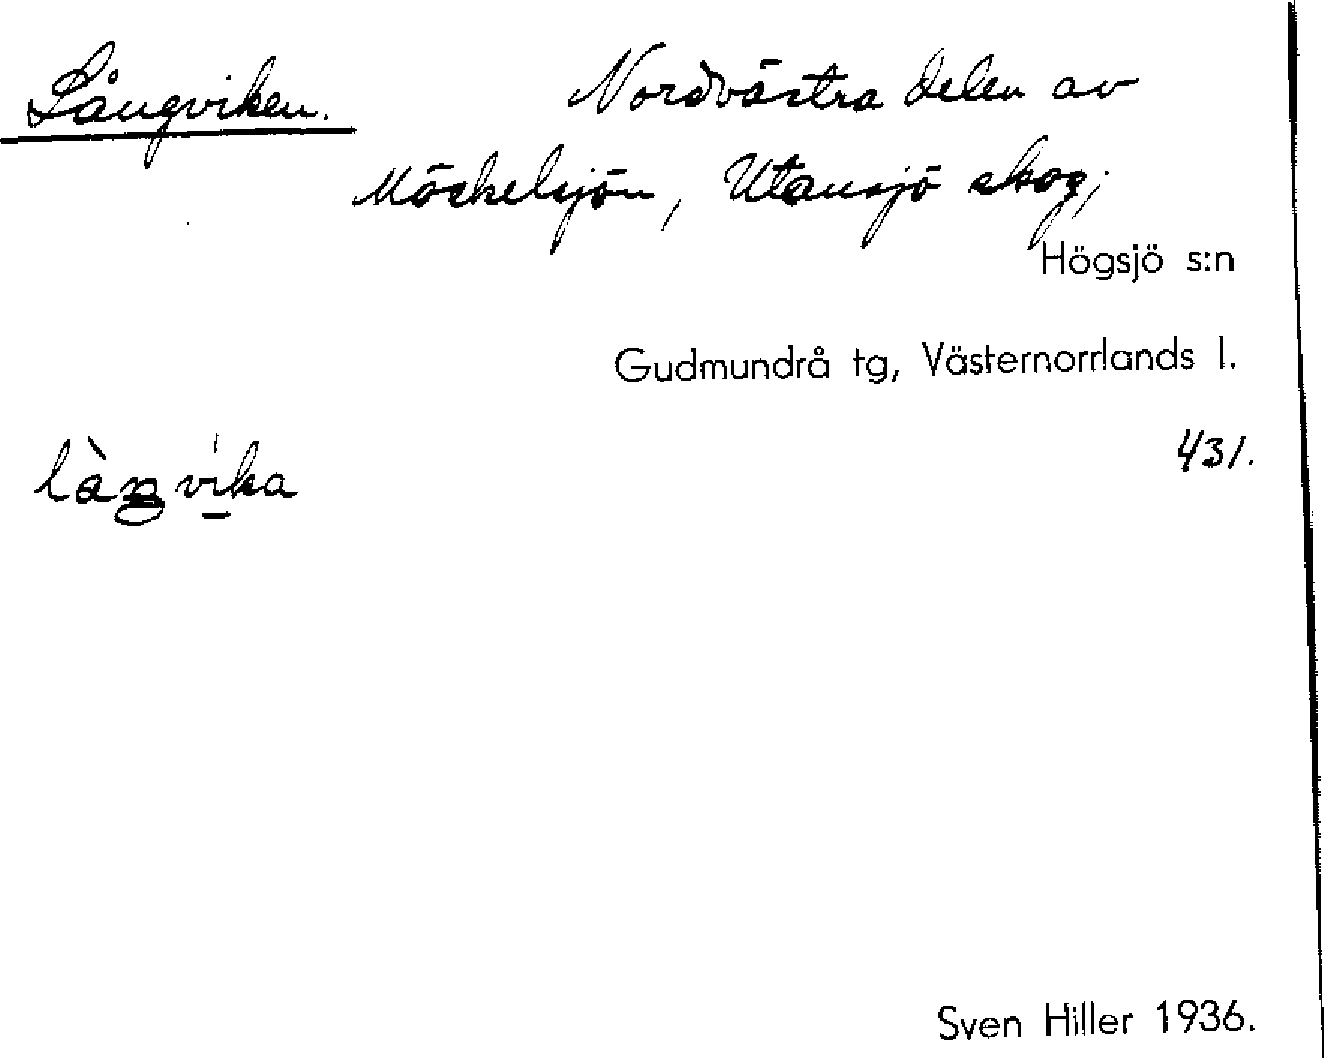 Långviken. Nordvästra delen av
Möckelsjön, Utansjö skog;
Högsjö s:n
Gudmundrå tg, Västernorrlands l.
431.
làŋvi̱ka
Sven Hiller 1936.